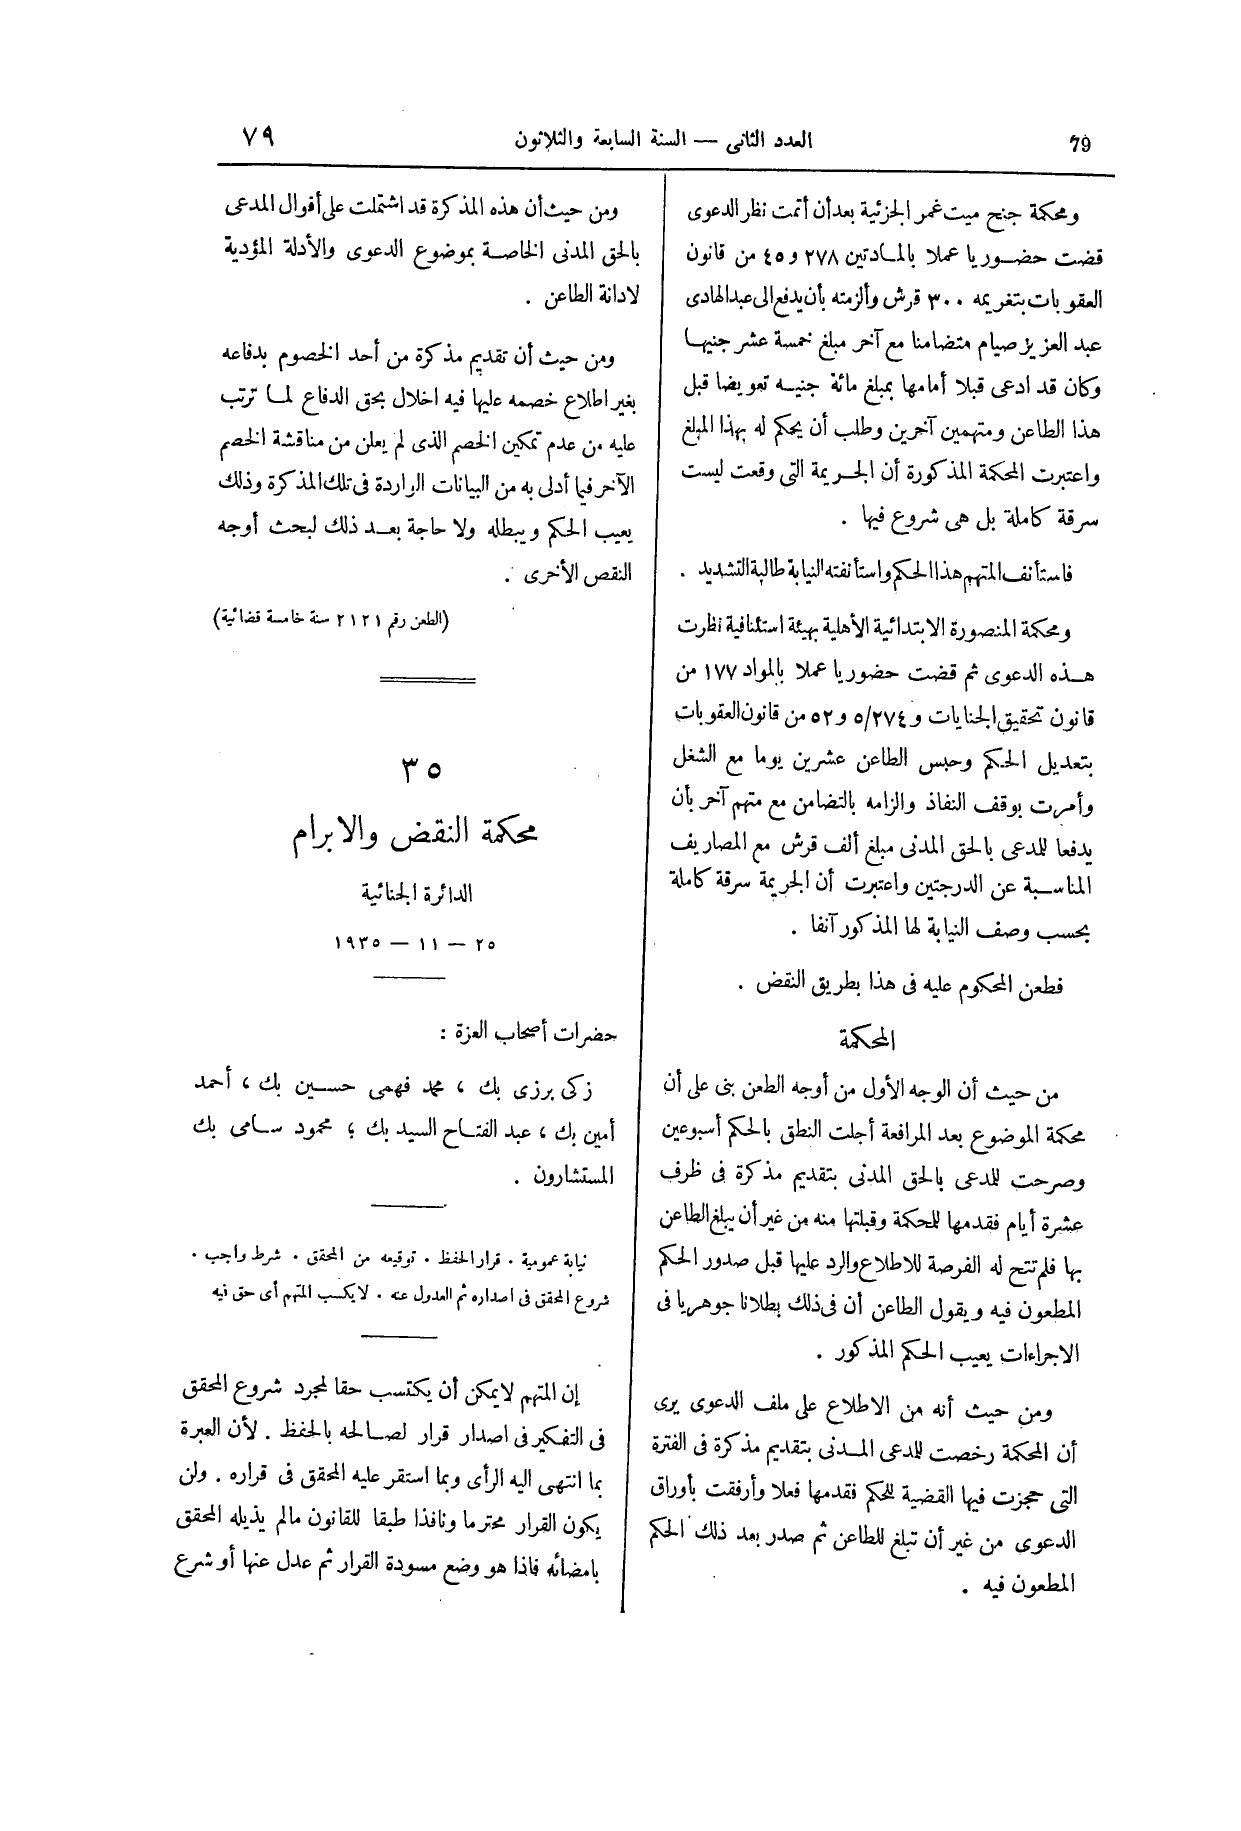 79
العدد الثانى — السنة السابعة والثلاثون
٧٩
ومحكمة جنح ميت غمر الجزئية بعد أن أتمت نظر الدعوى
قضت حضوريا عملا بالمادتين ٢٧٨ و ٤٥ من قانون
العقوبات بتغريمه ٣٠٠ قرش وألزمته بأن يدفع الى عبد الهادى
عبد العزيز صيام متضامنا مع آخر مبلغ خمسة عشر جنيها
وكان قد ادعى قبلا أمامها بمبلغ مائة جنيه تعويضا قبل
هذا الطاعن ومتهمين آخرين وطلب أن يحكم له بهذا المبلغ
واعتبرت المحكمة المذكورة أن الجريمة التى وقعت ليست
سرقة كاملة بل هى شروع فيها .
فاستأنف المتهم هذا الحكم واستأنفته النيابة طالبة التشديد .
ومحكمة المنصورة الابتدائية الأهلية بهيئة استئنافية نظرت
هذه الدعوى ثم قضت حضوريا عملا بالمواد ١٧٧ من
قانون تحقيق الجنايات و ٥/٢٧٤ و ٥٢ من قانون العقوبات
بتعديل الحكم وحبس الطاعن عشرين يوما مع الشغل
وأمرت بوقف النفاذ والزامه بالتضامن مع متهم آخر بأن
يدفعا للدعى بالحق المدنى مبلغ ألف قرش مع المصاريف
المناسبة عن الدرجتين واعتبرت أن الجريمة سرقة كاملة
بحسب وصف النيابة لها المذكور آنفا .
فطعن المحكوم عليه فى هذا بطريق النقض .
المحكمة
من حيث أن الوجه الأول من أوجه الطعن بنى على أن
محكمة الموضوع بعد المرافعة أجلت النطق بالحكم أسبوعين
وصرحت للدعى بالحق المدنى بتقديم مذكرة فى ظرف
عشرة أيام فقدمها للحكمة وقبلتها منه من غير أن يبلغ الطاعن
بها فلم تتح له الفرصة للاطلاع والرد عليها قبل صدور الحكم
المطعون فيه ويقول الطاعن أن فى ذلك بطلانا جوهريا فى
الاجراءات يعيب الحكم المذكور .
ومن حيث أنه من الاطلاع على ملف الدعوى يرى
أن المحكمة رخصت للدعى المدنى بتقديم مذكرة فى الفترة
التى حجزت فيها القضية للحكم فقدمها فعلا وأرفقت بأوراق
الدعوى من غير أن تبلغ للطاعن ثم صدر بعد ذلك الحكم
المطعون فيه .
ومن حيث أن هذه المذكرة قد اشتملت على أقوال المدعى
بالحق المدنى الخاصة بموضوع الدعوى والأدلة المؤدية
لادانة الطاعن .
ومن حيث أن تقديم مذكرة من أحد الخصوم بدفاعه
بغير اطلاع خصمه عليها فيه اخلال بحق الدفاع لما ترتب
عليه من عدم تمكين الخصم الذى لم يعلن من مناقشة الخصم
الآخر فيما أدلى به من البيانات الواردة فى تلك المذكرة وذلك
يعيب الحكم ويبطله ولا حاجة بعد ذلك لبحث أوجه
النقص الأخرى .
(الطعن رقم ٢١٢١ سنة خامسة قضائية)
٣٥
محكمة النقض والابرام
الدائرة الجنائية
٢٥ — ١١ — ١٩٣٥
حضرات أصحاب العزة :
زكى برزى بك ، محمد فهمى حسين بك ، أحمد
أمين بك ، عبد الفتاح السيد بك ، محمود سامى بك
المستشارون .
نيابة عمومية . قرار الحفظ . توقيعه من المحقق . شرط واجب .
شروع المحقق فى اصداره ثم العدول عنه . لا يكسب المتهم أى حق فيه
إن المتهم لا يمكن أن يكتسب حقا لمجرد شروع المحقق
فى التفكير فى اصدار قرار لصالحه بالحفظ . لأن العبرة
بما انتهى اليه الرأى وبما استقر عليه المحقق فى قراره . ولن
يكون القرار محترما ونافذا طبقا للقانون مالم يذيله المحقق
بامضائه فاذا هو وضع مسودة القرار ثم عدل عنها أو شرع